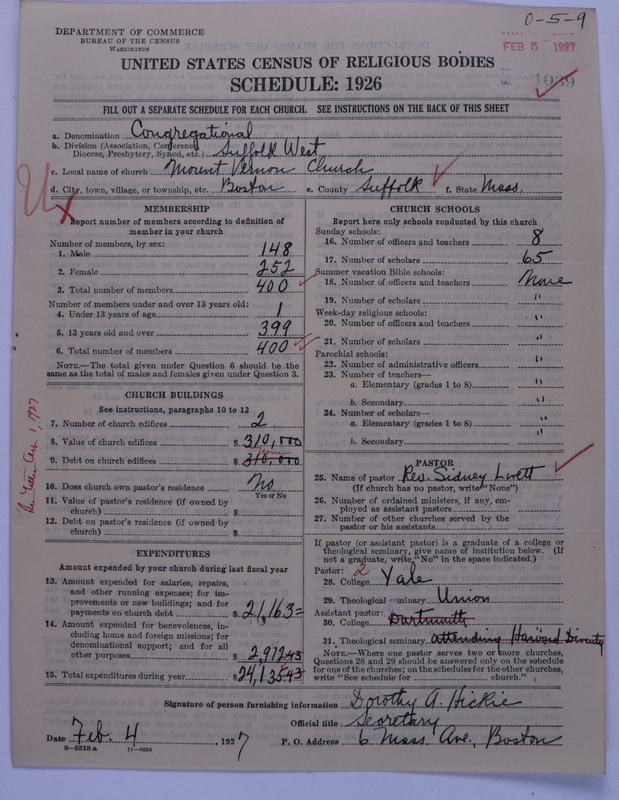 0-5-9
DEPARTMENT OF COMMERCE
BUREAU OF THE CENSUS
WASHINGTON
FEB 5 1927
UNITED STATES CENSUS OF RELIGIOUS BODIES
SCHEDULE: 1926
FILL OUT A SEPARATE SCHEDULE FOR EACH CHURCH. SEE INSTRUCTIONS ON THE BACK OF THIS SHEET
a. Denomination Congregational
b. Division (Association, Conference, Diocese, Presbytery, Synod, etc.) Suffolk West
c. Local name of church Mount Vernon Church
d. City, town, village, or township, etc. Boston e. County Suffolk f. State Mass.
MEMBERSHIP
Report number of members according to definition of
member in your church
Number of members, by sex:
1. Male 148
2. Female 252
3. Total number of members 400
Number of members under and over 13 years old:
4. Under 13 years of age 1
5. 13 years old and over 399
6. Total number of members 400
NOTE.—The total given under Question 6 should be
same as the total of males and females given under Question 3.
CHURCH BUILDINGS
See instructions, paragraphs 10 to 12
7. Number of church edifices 2
8. Value of church edifices $ 310,000
9. Debt on church edifices $ 310,000 None
10. Does church own pastor's residence No
Yes or No
11. Value of pastor's residence (if owned by
church) $
12. Debt on pastor's residence (if owned by
church) $
EXPENDITURES
Amount expended by your church during last fiscal year
13. Amount expended for salaries, repairs,
and other running expenses; for im-
provements or new buildings; and for
payments on church debt $ 21,163=
14. Amount expended for benevolences, in-
cluding home and foreign missions; for
denominational support; and for all
other purposes $ 2,972.43
15. Total expenditures during year $ 24,135.43
CHURCH SCHOOLS
Report here only schools conducted by this church
Sunday schools:
16. Number of officers and teachers 8
17. Number of scholars 65
Summer vacation Bible schools:
18. Number of officers and teachers None
19. Number of scholars "
Week-day religious schools:
20. Number of officers and teachers "
21. Number of scholars "
Parochial schools:
22. Number of administrative officers "
23. Number of teachers—
a. Elementary (grades 1 to 8) "
b. Secondary "
24. Number of scholars—
a. Elementary (grades 1 to 8) "
b. Secondary "
PASTOR
25. Name of pastor Rev. Sidney Lovett
(If church has no pastor, write "None")
26. Number of ordained ministers, if any, em-
ployed as assistant pastors
27. Number of other churches served by the
pastor or his assistants
If pastor (or assistant pastor) is a graduate of a college or
theological seminary, give name of institution below. (If
not a graduate, write "No" in the space indicated.)
Pastor: 2
28. College Yale
29. Theological seminary Union
Assistant pastor:
30. College Dartmouth
31. Theological seminary attending Harvard Divinity
NOTE.—Where one pastor serves two or more churches,
Questions 28 and 29 should be answered only on the schedule
for one of the churches; on the schedules for the other churches,
write "See schedule for church."
Signature of person furnishing information Dorothy A. Hickie
Official title Secretary
Date Feb. 4, 1927 P. O. Address 6 Mass. Ave., Boston
8-5518a 11-9064